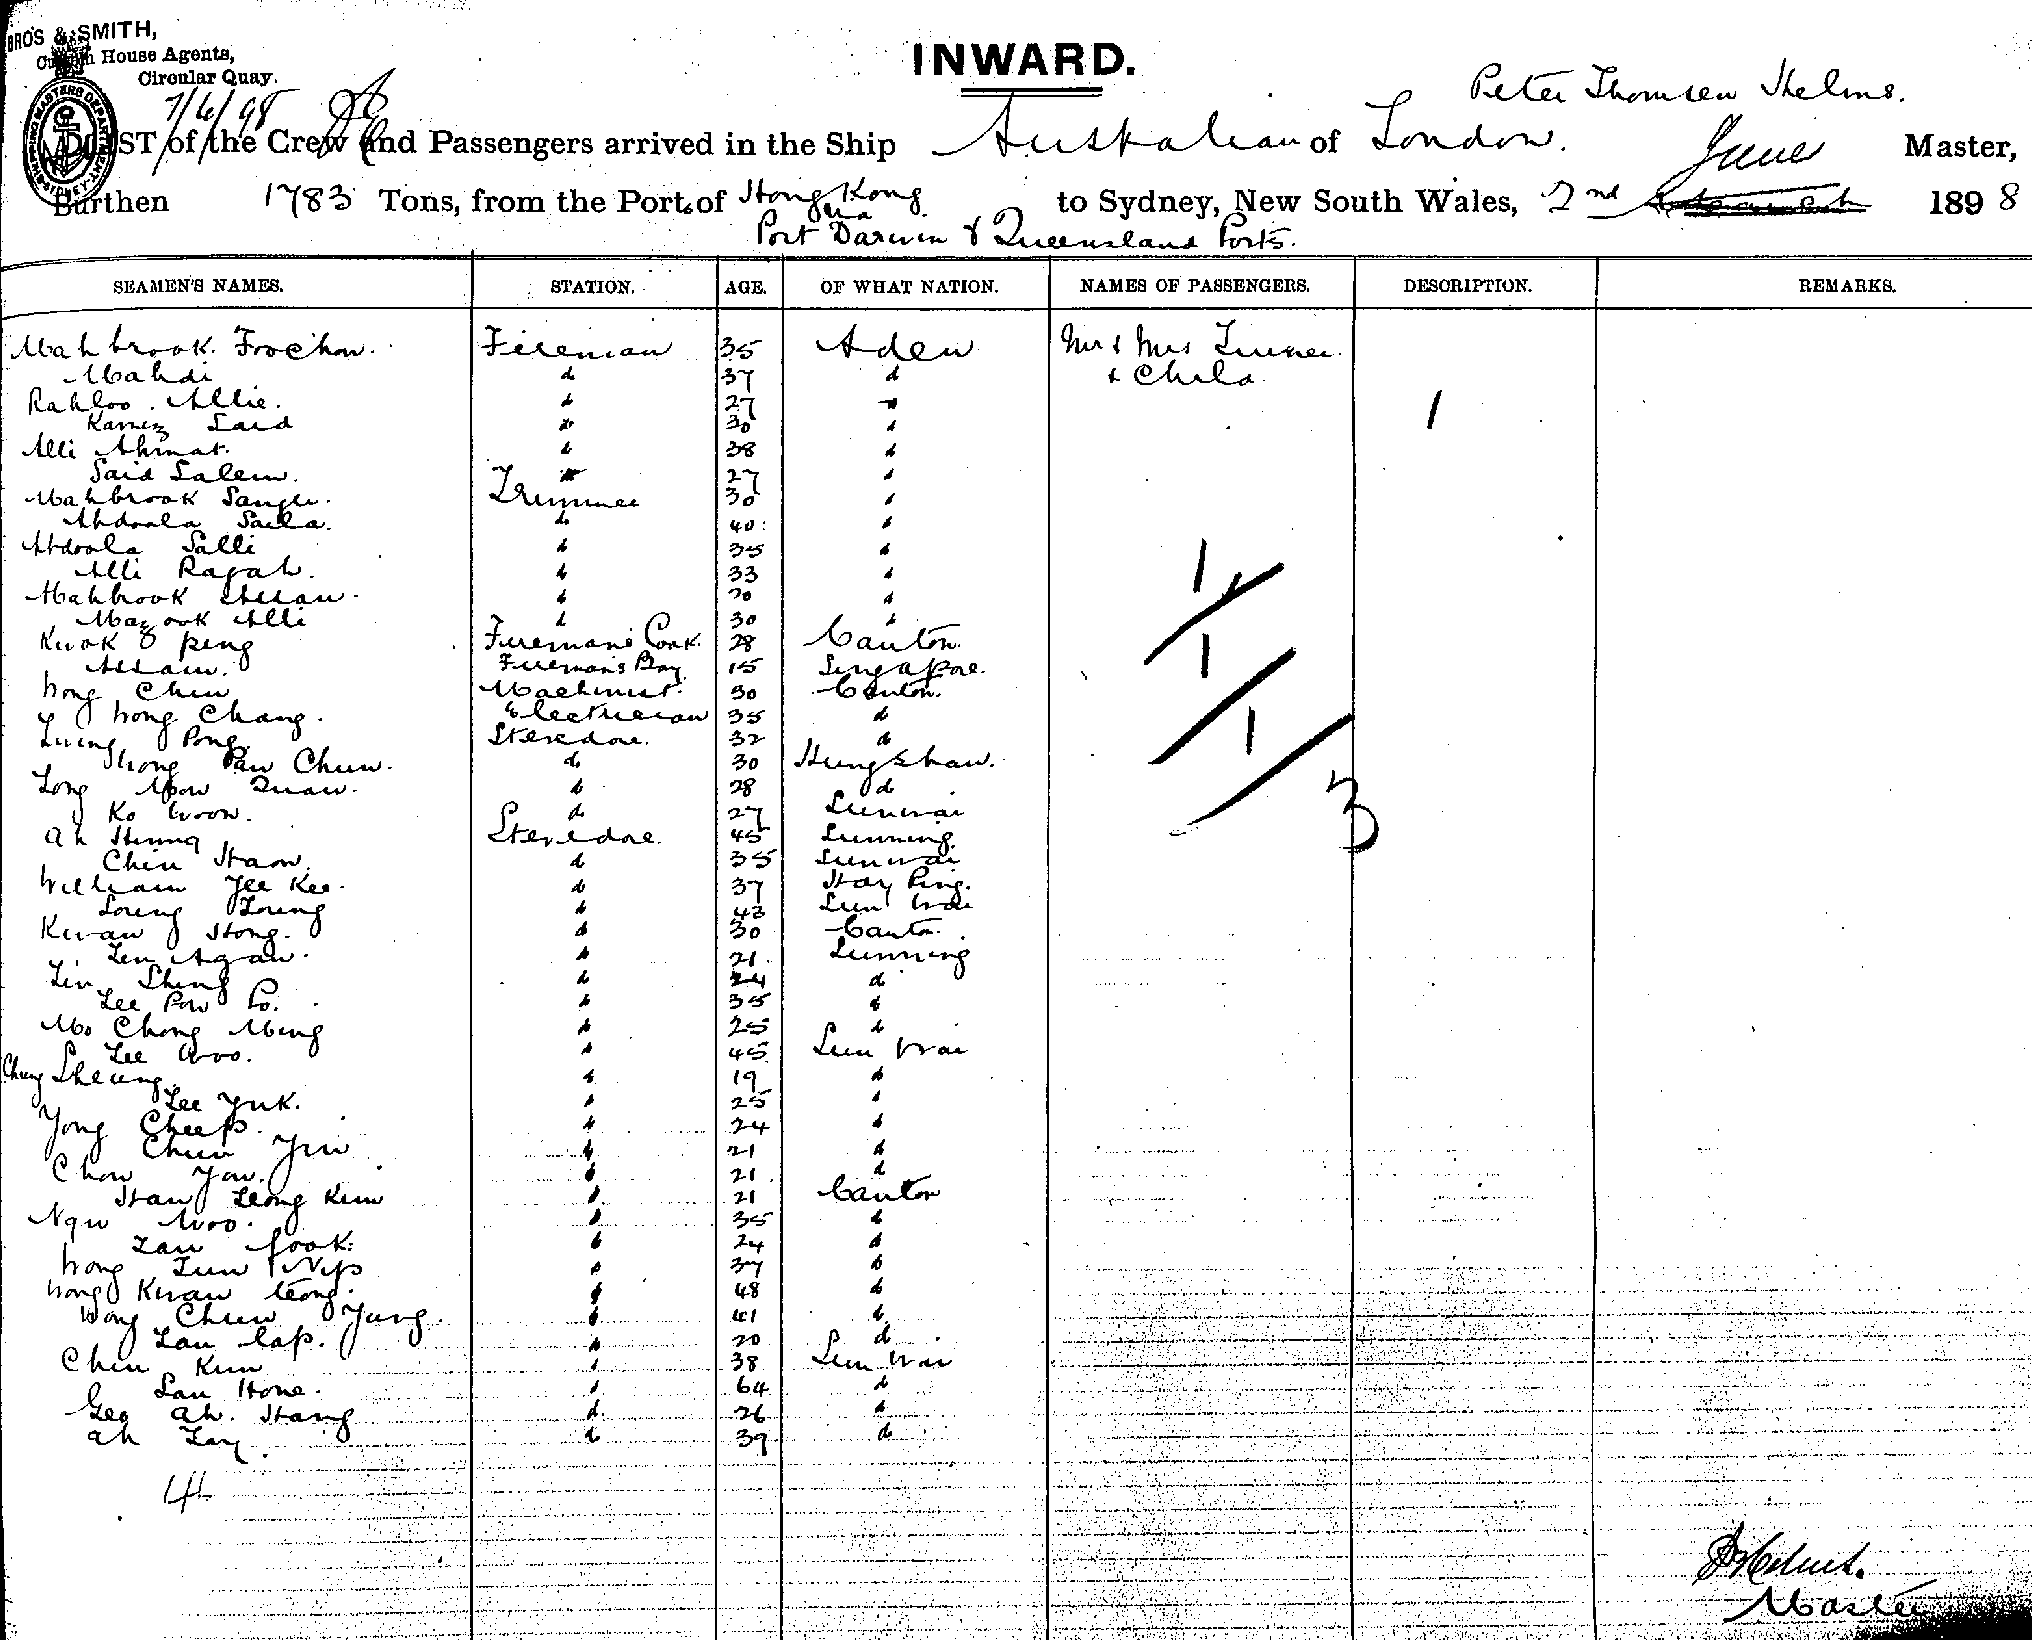 BRO'S & SMITH,
Custom House Agents,
Circular Quay.
7/6/98
INWARD.
Peter Thomsen Helms.
LIST of the Crew and Passengers arrived in the Ship Australian of London. Master,
June
Burthen 1783 Tons, from the Port of Hong Kong to Sydney, New South Wales, 2nd 1898
via
Port Darwin & Queensland Ports.
SEAMEN'S NAMES. STATION. AGE. OF WHAT NATION. NAMES OF PASSENGERS. DESCRIPTION. REMARKS.
Mahbrook Froehow. Fireman 35 Aden Mr & Mrs Turner
Mahdi d 37 d & Child
Rahloo Allie. d 27 d 1
Karney Said d 30 d
Alli Ahmat. d 38 d
Said Salem. d 27 d
Mahbrook Trimmer 30 d
Abdoola Saila. d 40 d
Abdoola Salli d 35 d
Alli Ragah. d 33 d
Mahbrook Assan d 20 d
Mazook Alli d 30 d
Kwok Peng Fireman's Cook. 28 Canton.
Assam. Fireman's Boy 15 Singapore.
Wong Chin Machinist. 30 Canton.
Wong Chang. Electrician 35 d
Pong Stevedore. 32 d
Paw Chun. d 30 Hungshaw.
Long Mow Quan. d 28 d
Ko Woon. d 27 Sunwai
Ah Hung Stevedore 45 Sunning.
Chin Haow. d 35 Sunwai
William Yee Kee. d 37 Hoy Ping.
Loung Loung d 43 Sun Wai
Kwan Hong. d 30 Canton.
Len Agan. d 21 Sunning
Lin Shing d 24 d
Lee Pow Po. d 35 d
Mo Chong Ming d 25 d
Lee Woo. d 45 Sun Wai
Chung Sheung. d 19 d
Lee Yuk. d 25 d
Yong Cheep. d 24 d
Chun Yin d 21 d
Chow Yow. d 21 d
Han Leong Kum d 21 Canton
Ngu Woo. d 35 d
Lau Fook. d 24 d
Wong Lun Nip d 37 d
Wong Kwan Leong. d 48 d
Wong Chun Yung. d 41 d
Lau Lap. d 20 d
Chin Kun d 38 Sun Wai
Lau Hone. d 64 d
Geo Ah Hang d 26 d
Ah Lay. d 39 d
1
1
1
3
Master